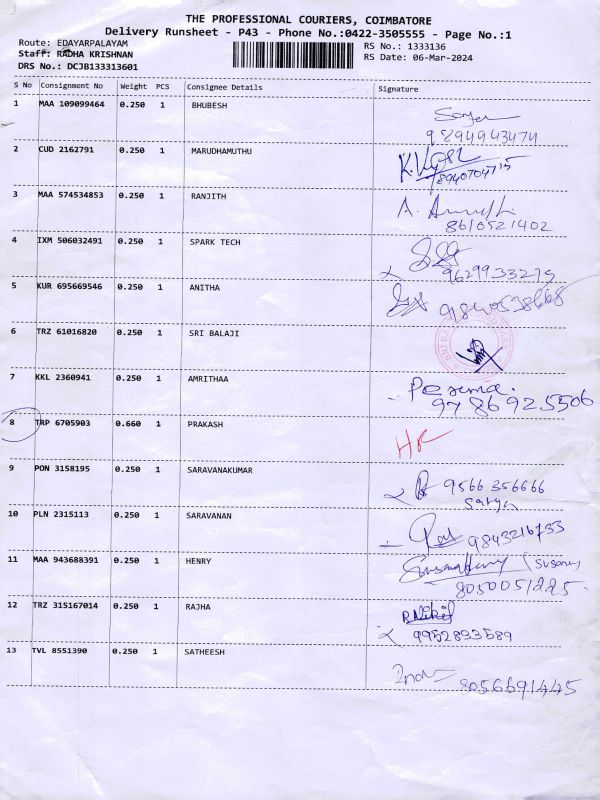 THE PROFESSIONAL COURIERS, COIMBATORE
Delivery Runsheet - P43 - Phone No.:0422-3505555 - Page No.:1
Route: EDAYARPALAYAM RS No.: 1333136
Staff: RADHA KRISHNAN RS Date: 06-Mar-2024
DRS No.: DCJB133313601
S No Consignment No Weight PCS Consignee Details Signature
1 MAA 109099464 0.250 1 BHUBESH
9894943474
2 CUD 2162791 0.250 1 MARUDHAMUTHU
8940704715
3 MAA 574534853 0.250 1 RANJITH
8610521402
4 IXM 506032491 0.250 1 SPARK TECH
9629933275
5 KUR 695669546 0.250 1 ANITHA
6 TRZ 61016820 0.250 1 SRI BALAJI
7 KKL 2360941 0.250 1 AMRITHAA
9786925506
8 TRP 6705903 0.660 1 PRAKASH
9 PON 3158195 0.250 1 SARAVANAKUMAR
9566 356666
Sarya
10 PLN 2315113 0.250 1 SARAVANAN
9843216733
11 MAA 943688391 0.250 1 HENRY
8050051225
12 TRZ 315167014 0.250 1 RAJHA
R.Nikil
9952893589
13 TVL 8551390 0.250 1 SATHEESH
8056691445